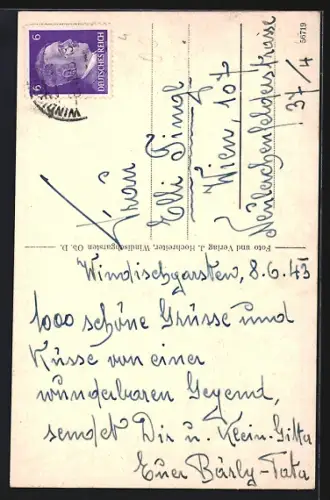 6 6
DEUTSCHES REICH
56719
Frau
Elli Tingl
Wien, 107
Neulerchenfelderstrasse
37/4
Foto und Verlag J. Hochreiter, Windischgarsten Ob. D.
Windischgarsten, 8.6.43
1000 schöne Grüsse und
Küsse von einer
wunderbaren Gegend,
sendet Dir u. Klein-Gitta
Euer Bärly-Tata